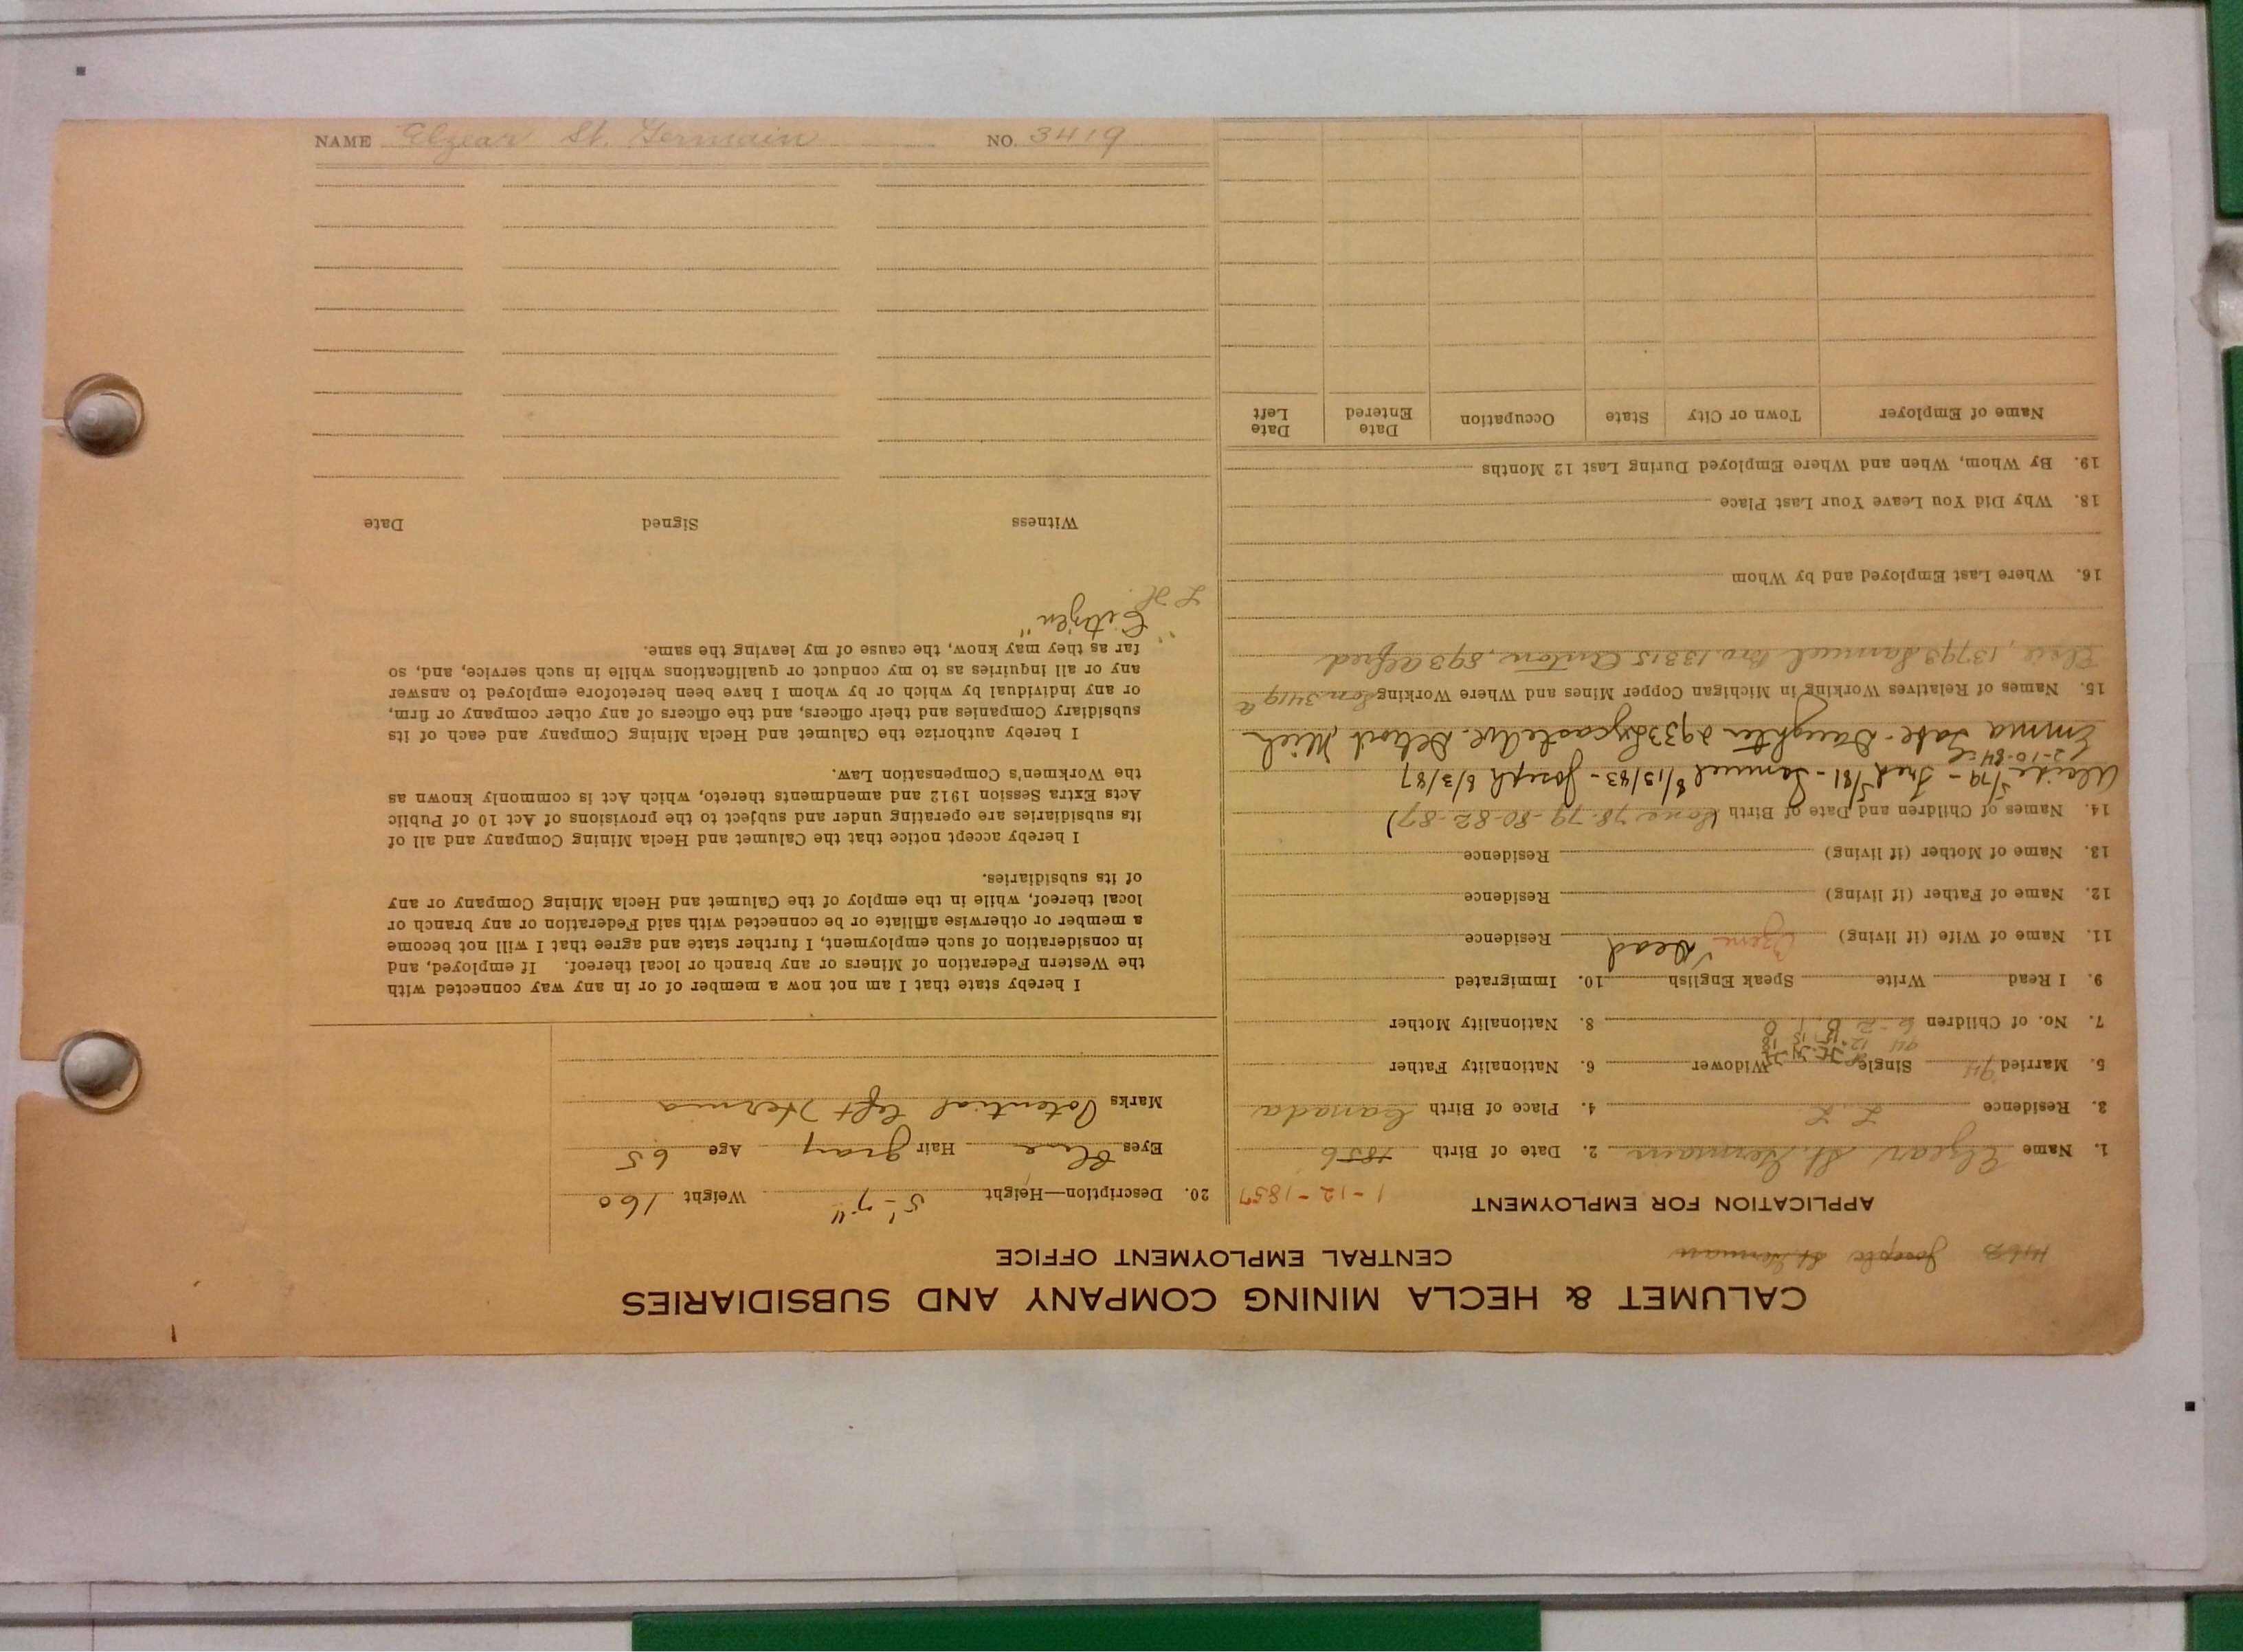 CALUMET & HECLA MINING COMPANY AND SUBSIDIARIES
CENTRAL EMPLOYMENT OFFICE
Joseph St. Germain
APPLICATION FOR EMPLOYMENT
1-12-1857
1. Name Elzear St. Germain 2. Date of Birth 1856
3. Residence L. L. 4. Place of Birth Canada
5. Married Single Widower 6. Nationality Father
7. No. of Children 6-2 B, 8. Nationality Mother
9. I Read Write Speak English 10. Immigrated
11. Name of Wife (if living) Dead Residence
12. Name of Father (if living) Residence
13. Name of Mother (if living) Residence
14. Names of Children and Date of Birth (Sons 78-79-80-82-87)
5/79 - Fred 5/81 - Samuel 8/13/83 - Joseph 6/3/87
2-10-84
Emma Daughter 2933 Lycaste Ave. Detroit Mich
15. Names of Relatives Working in Michigan Copper Mines and Where Working Son 3419a
Elsie, 13793 Samuel Bro. 13315 Anton, 893 Alfred
16. Where Last Employed and by Whom
18. Why Did You Leave Your Last Place
19. By Whom, When and Where Employed During Last 12 Months
Name of Employer Town or City State Occupation Date Entered Date Left
20. Description—Height 5'-7" Weight 160
Eyes Blue Hair gray Age 65
Marks Potential left Hernia
I hereby state that I am not now a member of or in any way connected with
the Western Federation of Miners or any branch or local thereof. If employed, and
in consideration of such employment, I further state and agree that I will not become
a member or otherwise affiliate or be connected with said Federation or any branch or
local thereof, while in the employ of the Calumet and Hecla Mining Company or any
of its subsidiaries.
I hereby accept notice that the Calumet and Hecla Mining Company and all of
its subsidiaries are operating under and subject to the provisions of Act 10 of Public
Acts Extra Session 1912 and amendments thereto, which Act is commonly known as
the Workmen's Compensation Law.
I hereby authorize the Calumet and Hecla Mining Company and each of its
subsidiary Companies and their officers, and the officers of any other company or firm,
or any individual by which or by whom I have been heretofore employed to answer
any or all inquiries as to my conduct or qualifications while in such service, and, so
far as they may know, the cause of my leaving the same.
"Citizen"
Witness Signed Date
NAME Elzear St. Germain NO. 3419